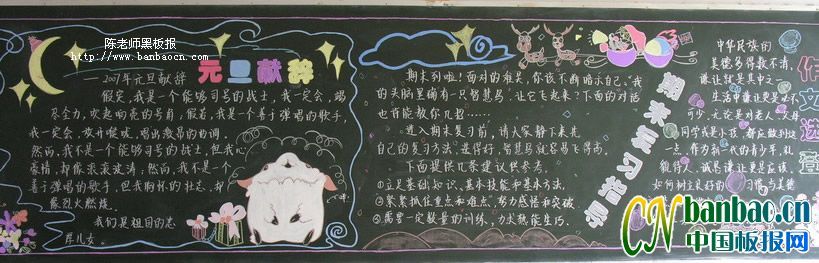 陈老师黑板报
http://www.banbaocn.com
元旦献辞
——2007年元旦献辞
假如,我是一个能够司号的战士,我一定会,竭
尽全力,吹起响亮的号角,假若,我是一个善于弹唱的歌手,
我一定会,放开喉咙,唱出激昂的协调。
然而,我不是一个能够司号的战士,但我心
豪情,却像滚滚波涛,然而,我不是一个
善于弹唱的歌手,但我胸怀的壮志,却
像烈火燃烧。
我们是祖国的忠
群儿女。
期末复习指导
期末到啦!面对的难关,你该不断暗示自己,我
的头脑里确有一只智慧鸟,让它飞起来?下面的对话
也许能教你几招……
进入期末复习前,请大家静下来先
自己的复习方法,选得好,智慧鸟就容易飞得高。
下面提供几条建议供参考。
①立足基础知识、基本技能和基本方法。
②紧紧抓住重点和难点,努力感悟和突破
③需要一定数量的训练,力求熟能生巧。
作文选登
中华民族的
美德多得数不清,
谦让就是其中之一
生活中谦让更是必不
可少,无论是对老人
同学我是小孩,都应做到这
一点,作为新一代的青少年,礼
能待人,诚是谦让更是应该
如何树立良好的习惯与美德
CN banbao.cn
中国板报网